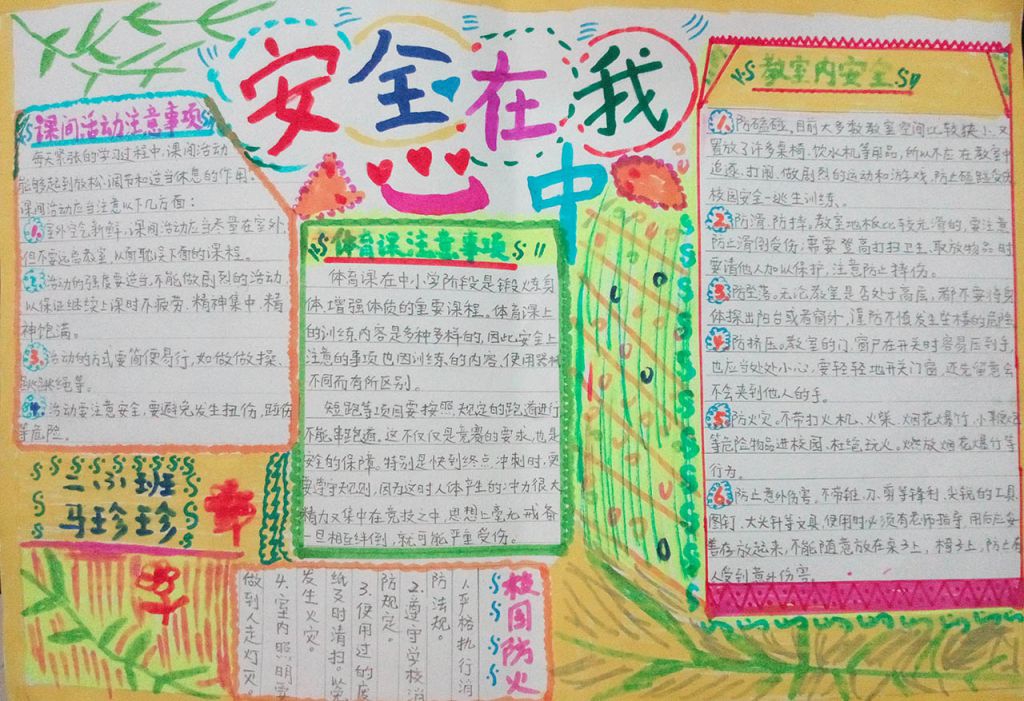 安全在我
心中
课间活动注意事项
每天紧张的学习过程中,课间活动
能够起到放松、调节和适当休息的作用。
课间活动应当注意以下几方面:
1.室外空气新鲜,课间活动应当尽量在室外,
但不要远离教室,以而耽误下面的课程。
2.活动的强度要适当,不能做剧烈的活动,
以保证继续上课时不疲劳、精神集中、精
神饱满。
3.活动的方式要简便易行,如做做操、
跳跳绳等。
4.活动要注意安全,要避免发生扭伤,
等危险。
三(6)班
马珍珍
体育课注意事项
体育课在中小学阶段是锻炼身
体、增强体质的重要课程。体育课上
的训练内容是多种多样的,因此安全上
注意的事项也因训练的内容、使用器械
不同而有所区别。
短跑等项目要按照规定的跑道进行,
不能串跑道。这不仅仅是竞赛的要求,也是
安全的保障。特别是快到终点冲刺时,更
要遵守规则,因为这时人体产生的冲力很大
精力又集中在竞技之中,思想上毫无戒备
一旦相互绊倒,就可能严重受伤。
校园防火
1.严格执行消
防法规。
2.遵守学校消
防规定。
3.使用过的废
纸及时清扫。以免
发生火灾。
4.室内照明要
做到人走灯灭。
教室内安全
1.防磕碰。目前大多数教室空间比较狭小,又
置放了许多桌椅、饮水机等用品,所以不应在教室中
追逐、打闹,做剧烈的运动和游戏,防止磕碰受伤
校园安全-逃生训练。
2.防滑、防摔。教室地板比较光滑的,要注意
防止滑倒受伤;需要登高打扫卫生、取放物品时
要请他人加以保护,注意防止摔伤。
3.防坠落。无论教室是否处于高层,都不要将身
体探出阳台或者窗外,谨防不慎发生坠楼的危险
4.防挤压。教室的门、窗户在开关时容易压到手,
也应当处处小心,要轻轻地开关门窗,还先留意会
不会夹到他人的手。
5.防火灾。不带打火机、火柴、烟花爆竹、小
等危险物品进校园,杜绝玩火、燃放烟花爆竹等
行为。
6.防止意外伤害。不带锥、刀、剪等锋利、尖锐的工具,
图钉、大头针等文具,使用时必须有老师指导,用后应妥
善存放起来,不能随意放在桌子上,椅子上,防止有
人受到意外伤害。